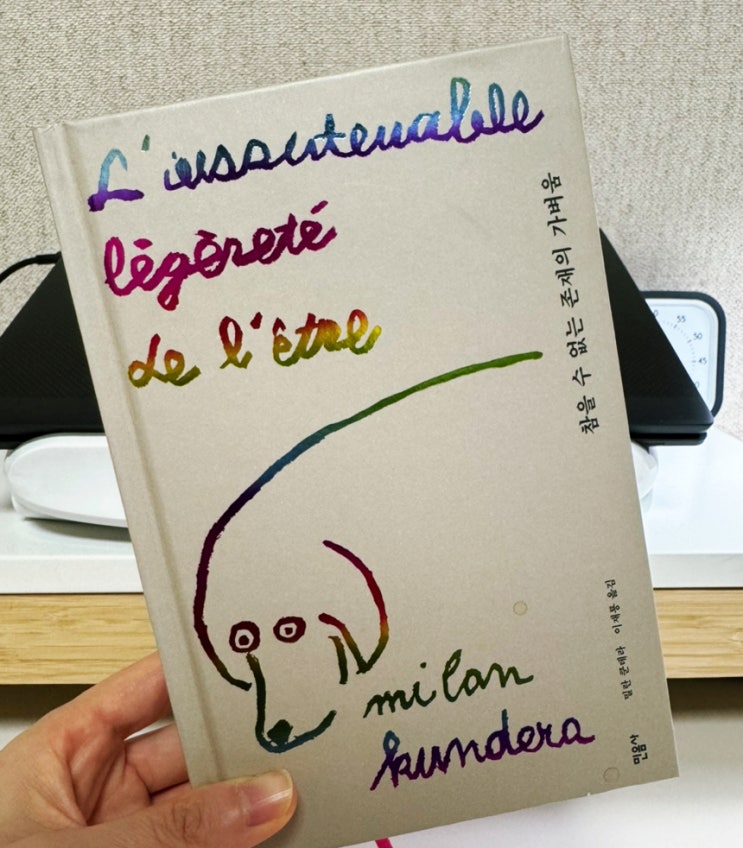 L'insoutenable
légèreté
de l'être
참을 수 없는 존재의 가벼움
milan
kundera
밀란 쿤데라 이재룡 옮김
민음사
55
50
45